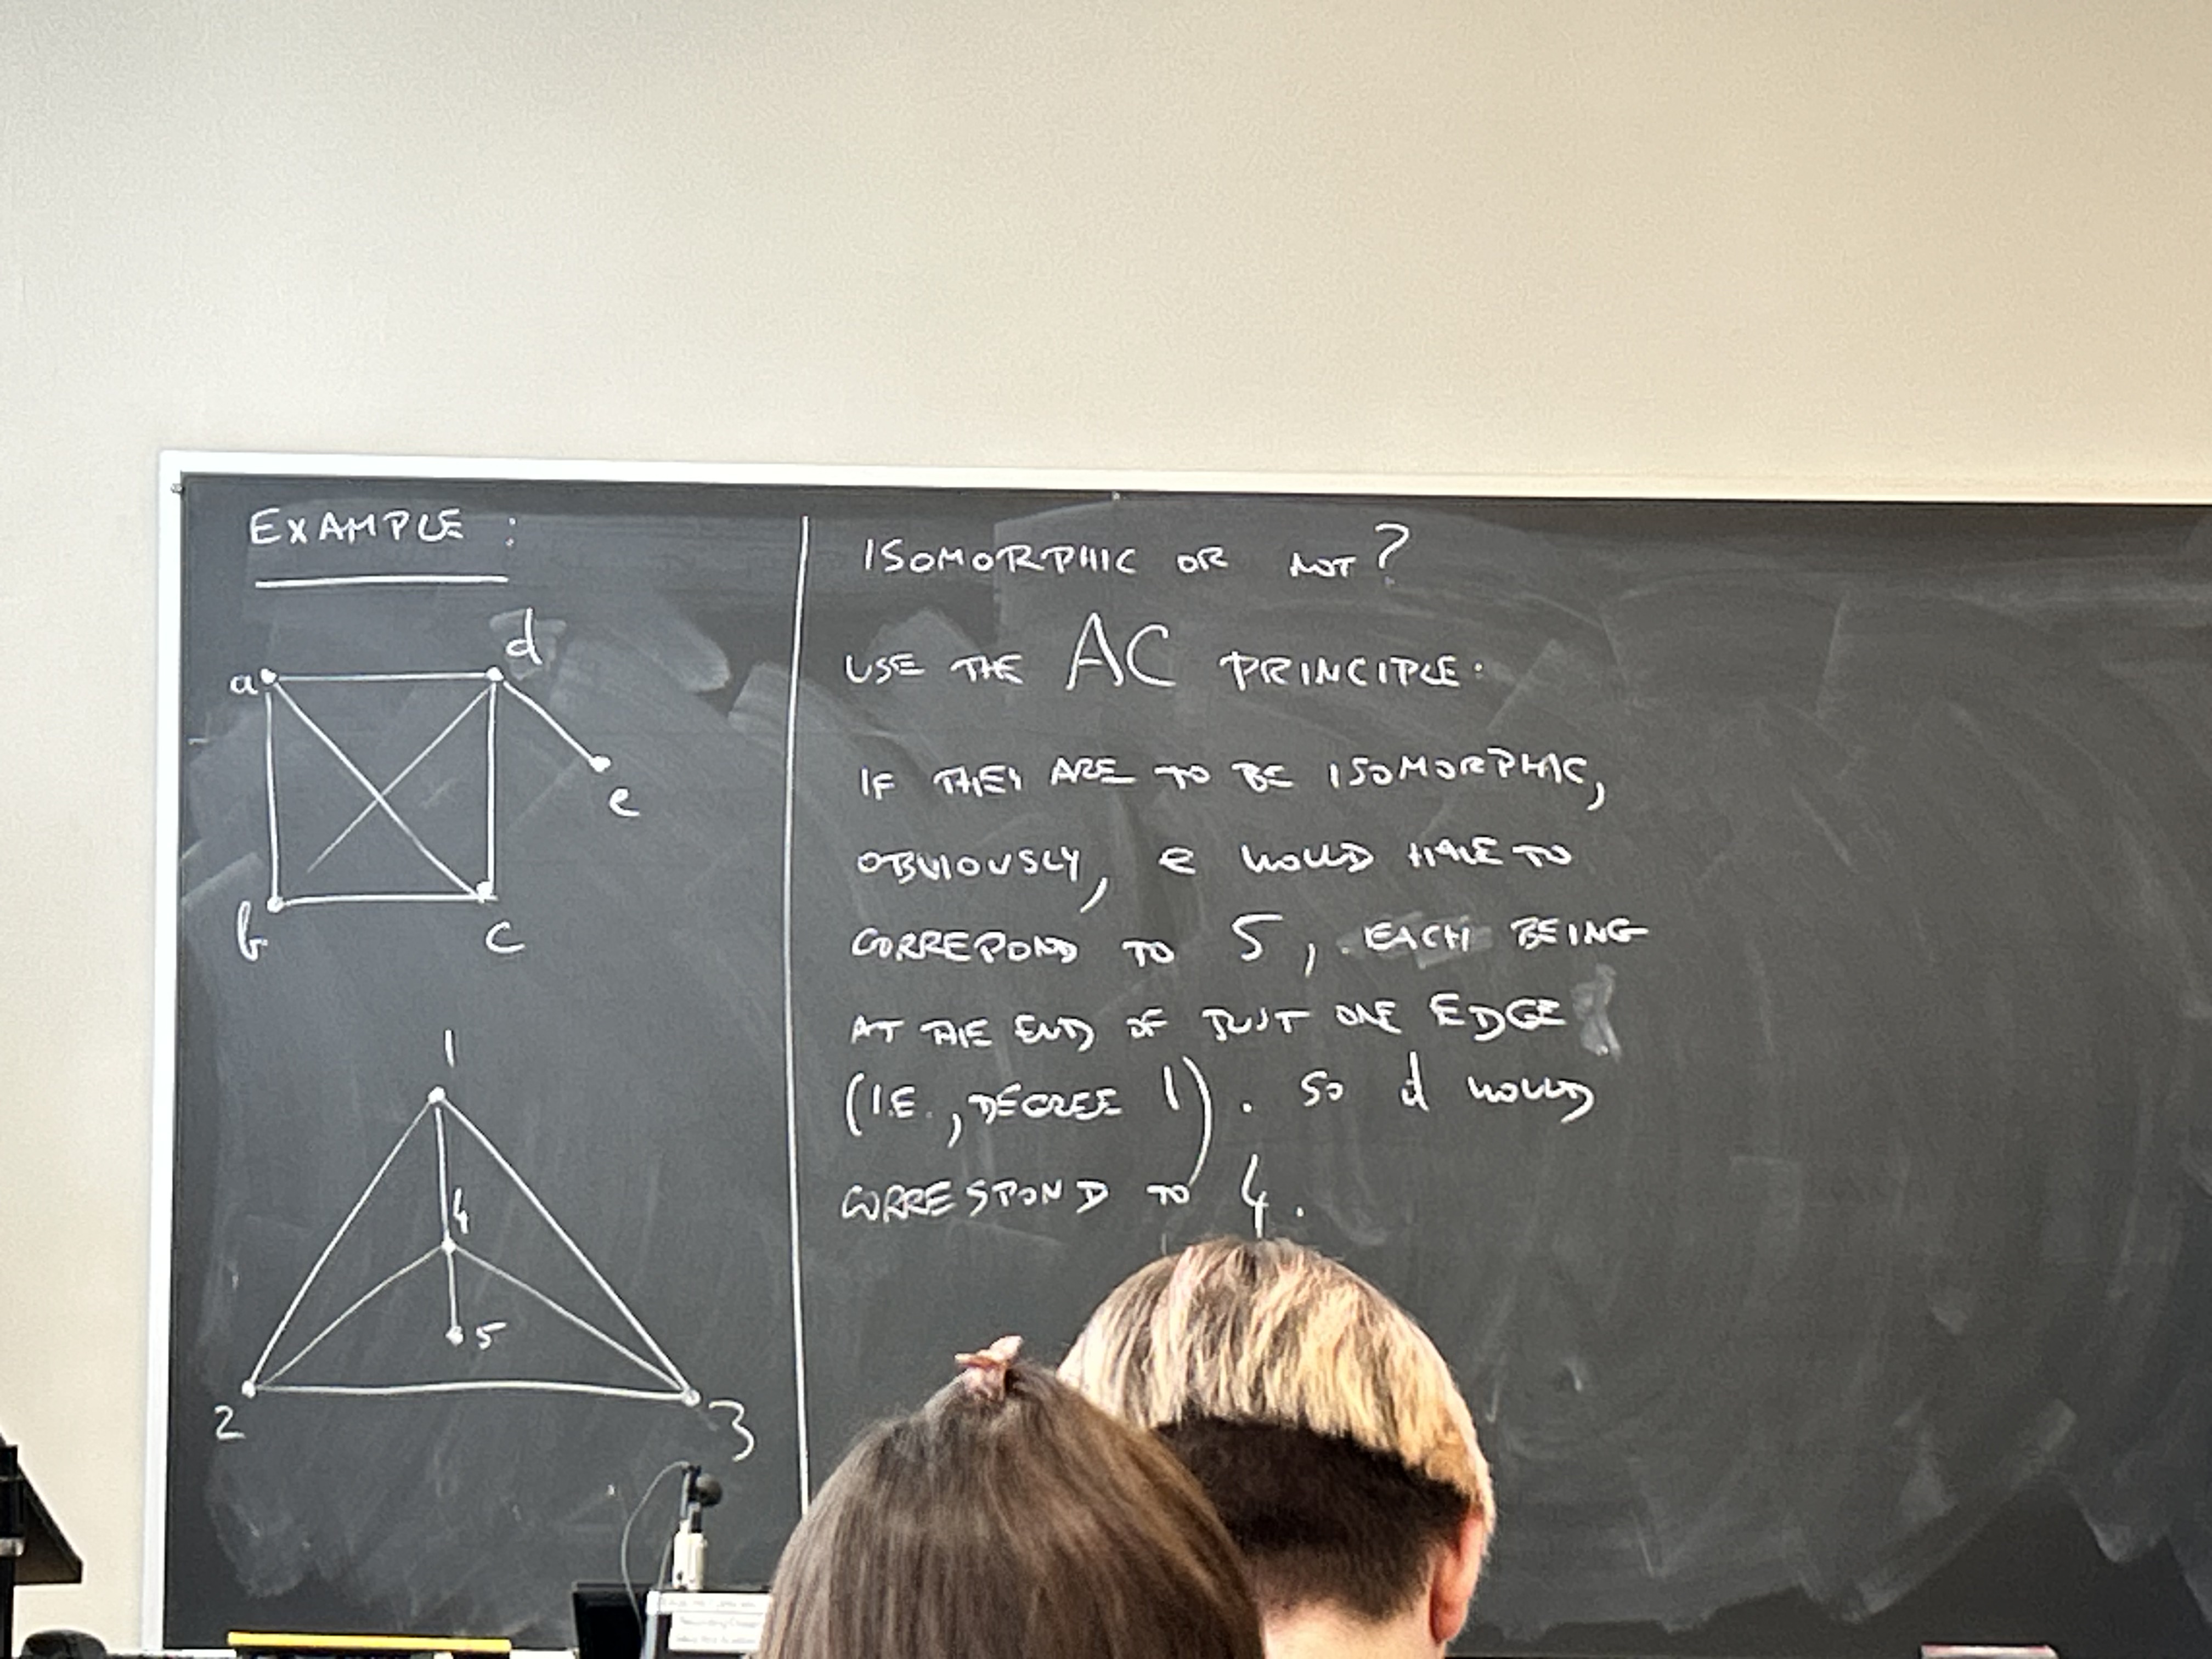 EXAMPLE :
d
a
e
b
c
1
4
5
2
3
ISOMORPHIC OR NOT?
USE THE AC PRINCIPLE:
IF THEY ARE TO BE ISOMORPHIC,
OBVIOUSLY, e WOULD HAVE TO
CORREPOND TO 5, EACH BEING
AT THE END OF JUST ONE EDGE
(I.E., DEGREE 1). SO d WOULD
CORRESPOND TO 4.